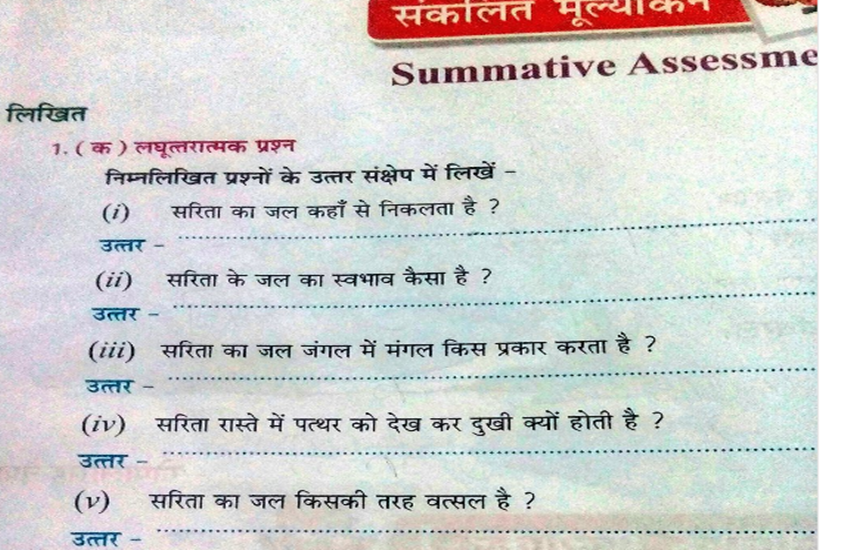 संकलित मूल्यांकन
Summative Assessme
लिखित
1. ( क ) लघूत्तरात्मक प्रश्न
निम्नलिखित प्रश्नों के उत्तर संक्षेप में लिखें -
(i) सरिता का जल कहाँ से निकलता है ?
उत्तर - ........................................
(ii) सरिता के जल का स्वभाव कैसा है ?
उत्तर - ........................................
(iii) सरिता का जल जंगल में मंगल किस प्रकार करता है ?
उत्तर - ........................................
(iv) सरिता रास्ते में पत्थर को देख कर दुखी क्यों होती है ?
उत्तर - ........................................
(v) सरिता का जल किसकी तरह वत्सल है ?
उत्तर - ........................................